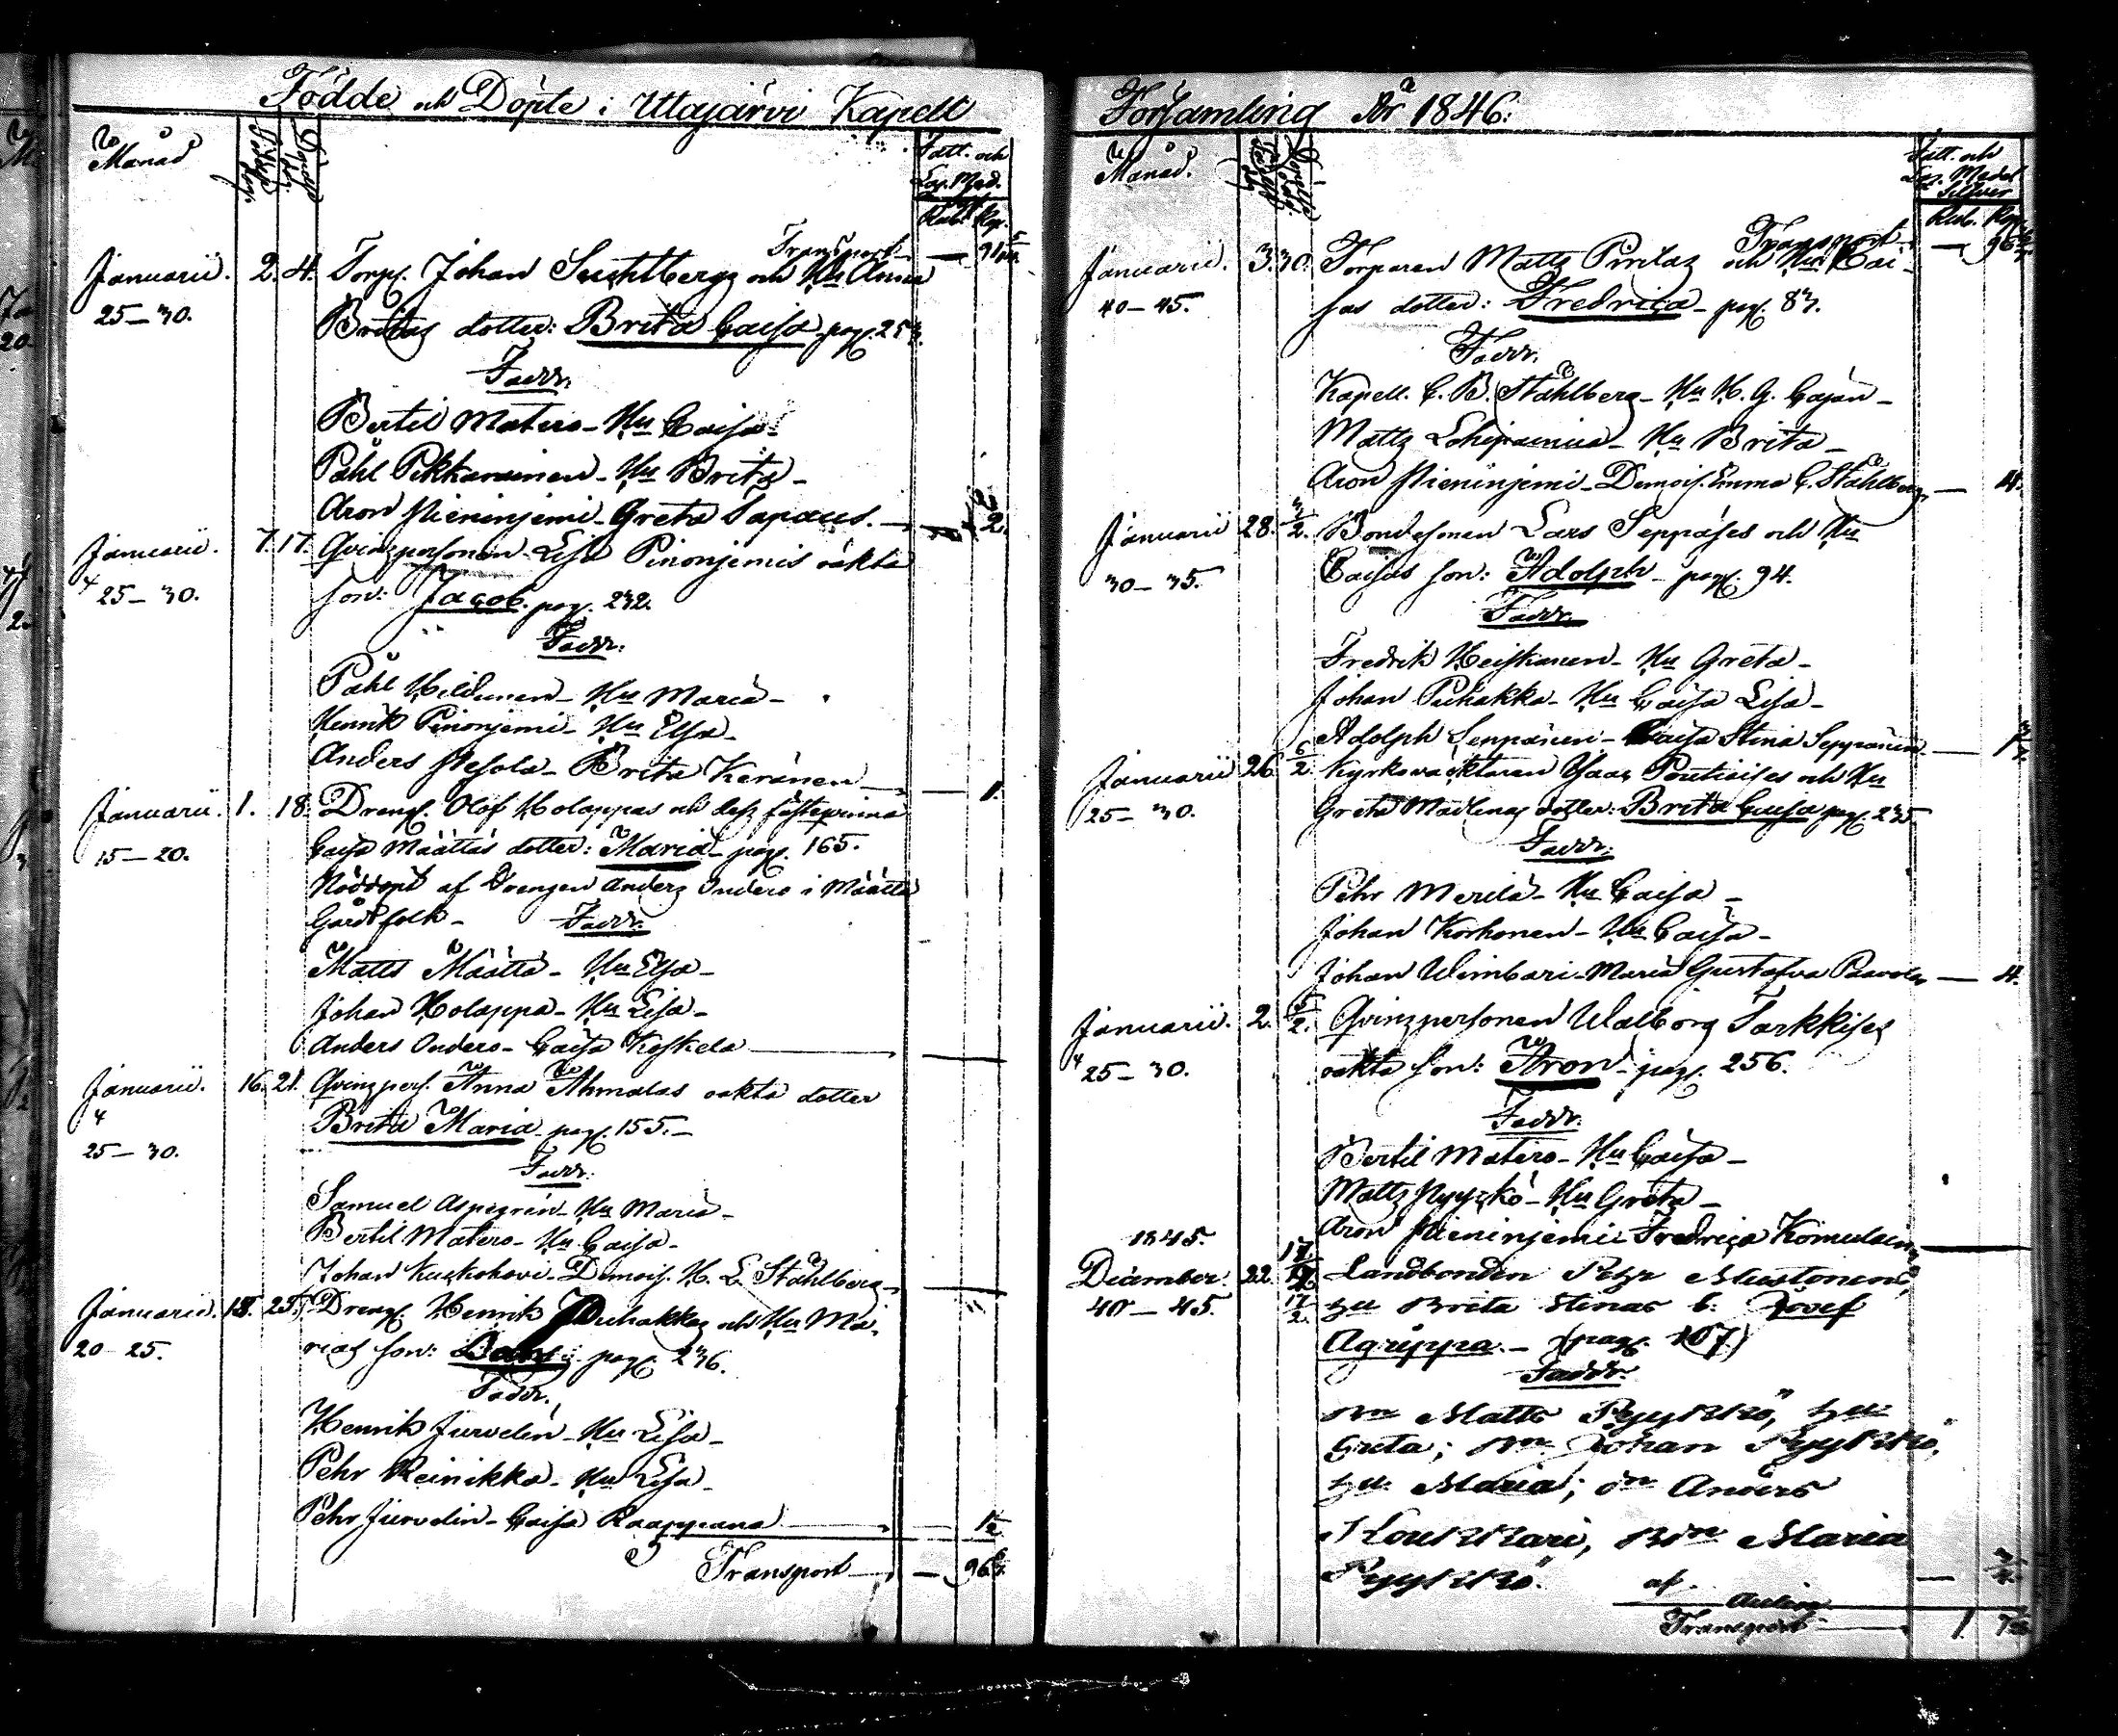 Födde och Döpte i Utajärvi Kapell
Månad
Fatt. och
Rub. Kop.
Transport
Januarii. 2. 4. Torp. Johan och Hu Anna
25–30. Britas dotter: Brita Caisa pag. 253.
Faddr.
Bertil Matero – Hu Caisa –
Påhl Pikkarainen – Hu Brita –
Aron Nieminjemi – Greta Tapaus. — 2.
Januarii. 7. 17. Qvinspersonen Lisa Pinonjemis oäkta
4 25–30. son: Jacob. pag. 232.
Faddr:
Påhl Hildunen – Hu Maria –
Henrik Pinonjemi – Hu Elsa –
Anders – Brita Keränen — 1.
Januarii. 1. 18. Dreng. Olof Holappas och dess fästeqvinna
15–20. Caisa Määttäs dotter: Maria – pag. 165.
Nöddöpt af Drengen Anders Ondero i Määttä
Gårdsfolk – Faddr.
Matts Määttä – Hu Elsa –
Johan Holappa – Hu Lisa –
Anders Ondero – Caisa Koskela —
Januarii. 16. 21. Qvinspers. Anna Ahmalas oäkta dotter
4
Brita Maria – pag. 155. –
25–30.
Faddr:
Samuel Aspegrén – Hu Maria –
Bertil Matero – Hu Caisa –
Johan – Demois. H. L. Ståhlberg –
Januarii. 18. 25. Dreng. Henrik Puhakkas och Hu Ma-
20–25. rias son: pag. 236.
Faddr.
Henrik Jurvelin – Hu Lisa –
Pehr Reinikka – Hu Lisa –
Pehr Jurvelin – Caisa Kaappana —
Transport —
Församling År 1846.
Månad.
Fatt. och
Silfver
Rub. Kop.
Transport
Januarii. 3. 30. Torparen Matts Pirilas och Hu Cai-
40–45. sas dotter: Fredrica – pag. 83.
Faddr.
Kapell. C. B. Ståhlberg – Hu H. G. Cajan –
Matts – Hu Brita –
Aron Nieminjemi – Demois. Emma C. Ståhlberg — 4.
Januarii 28. 3/2. Bondesonen Lars Seppäses och Hu
30–35. Caisas son: Adolph – pag. 94.
Faddr.
Fredrik Heiskanen – Hu Greta –
Johan Puhakka – Hu Caisa Lisa –
Adolph Seppänen – Caisa Stina Seppänen —
Januarii 26. 6/2 Kyrkovacktaren Isaac och Hu
25–30. Greta Madlenas dotter: Brita Caisa pag. 235.
Faddr.
Pehr Merilä – Hu Caisa –
Johan Korhonen – Hu Caisa –
Johan Wimbari – Maria Gustafva Paavola — 4.
Januarii. 2. Qvinspersonen Walborg Tarkkises
4 25–30. oäkta son: Aron – pag. 256.
Faddr.
Bertil Matero – Hu Caisa –
Matts Pyykkö – Hu Greta –
Aron Nieminjemi – Fredrica Komulainen
1845.
December. 22. 17/2. Landbonden Pehr Mustonens,
40–45. Hu Brita Stinas b. Josef
Agrippa. – (pag. 107)
Faddr.
Bn Matts Pyykkö, Hu
Greta; Bn Johan Pyykkö,
Hu Maria; Dn Anders
Koukkari, Maria
Pyykkö.
Transport — 1.